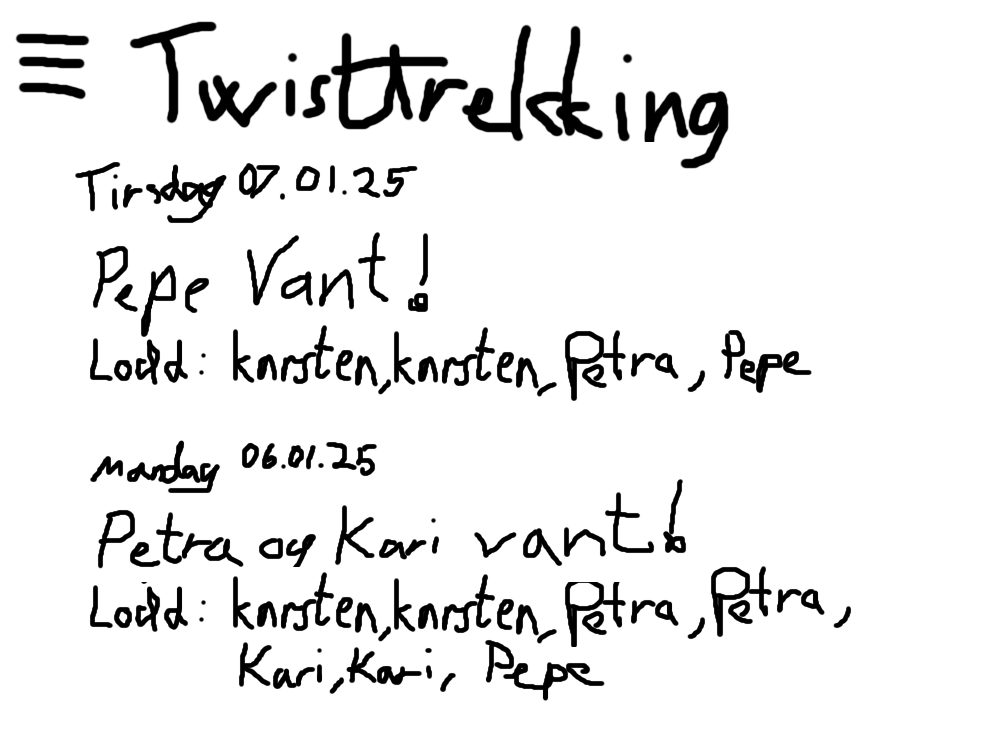 Twisttrekking
Tirsdag 07.01.25
Pepe Vant!
Lodd: karsten, karsten, Petra, Pepe
mandag 06.01.25
Petra og Kari vant!
Lodd: karsten, karsten, Petra, Petra,
Kari, Kari, Pepe